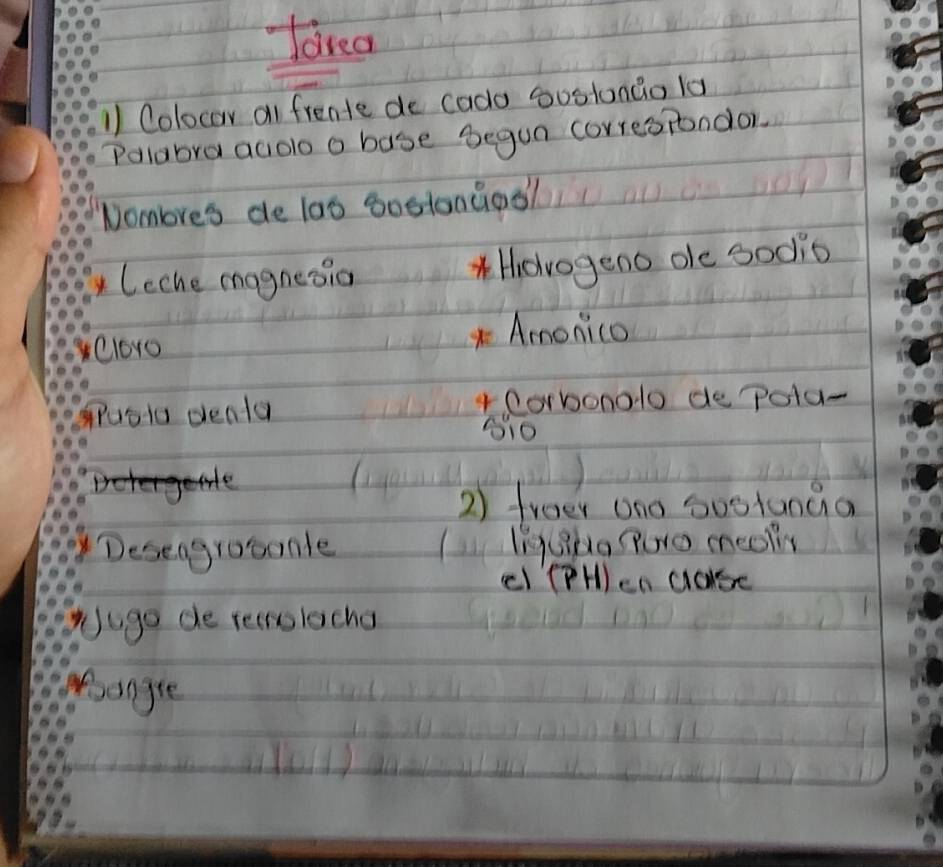 Tarea
1) Colocar al frente de cada sustancia la
Palabra acido o base Segun corresponda.
"Nombres de las sustancias"
* Leche magnesia
* Cloro
* Pasta denta
Detergente
* Desengrasante
* Jugo de remolacha
* Sangre
* Hidrogeno de sodio
* Amonico
* Carbonato de Pota-
sio
2) traer una sustancia
liquida Para medir
el (PH) en clase